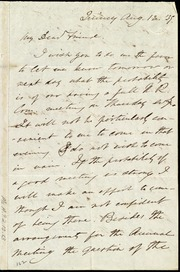 My Dear Friend
I wish you to do me the favor
to let us know tomorrow or
next day what the probability
is of our having a full
Com meeting on Thursday
It will not be particularly con-
venient to me to come on that
evening I do not wish to come
in vain. If the probability of
a good meeting is strong I
will make an effort to come
though I am not confident
of being there. Besides the
arrangement for the Annual
Meeting the question of the